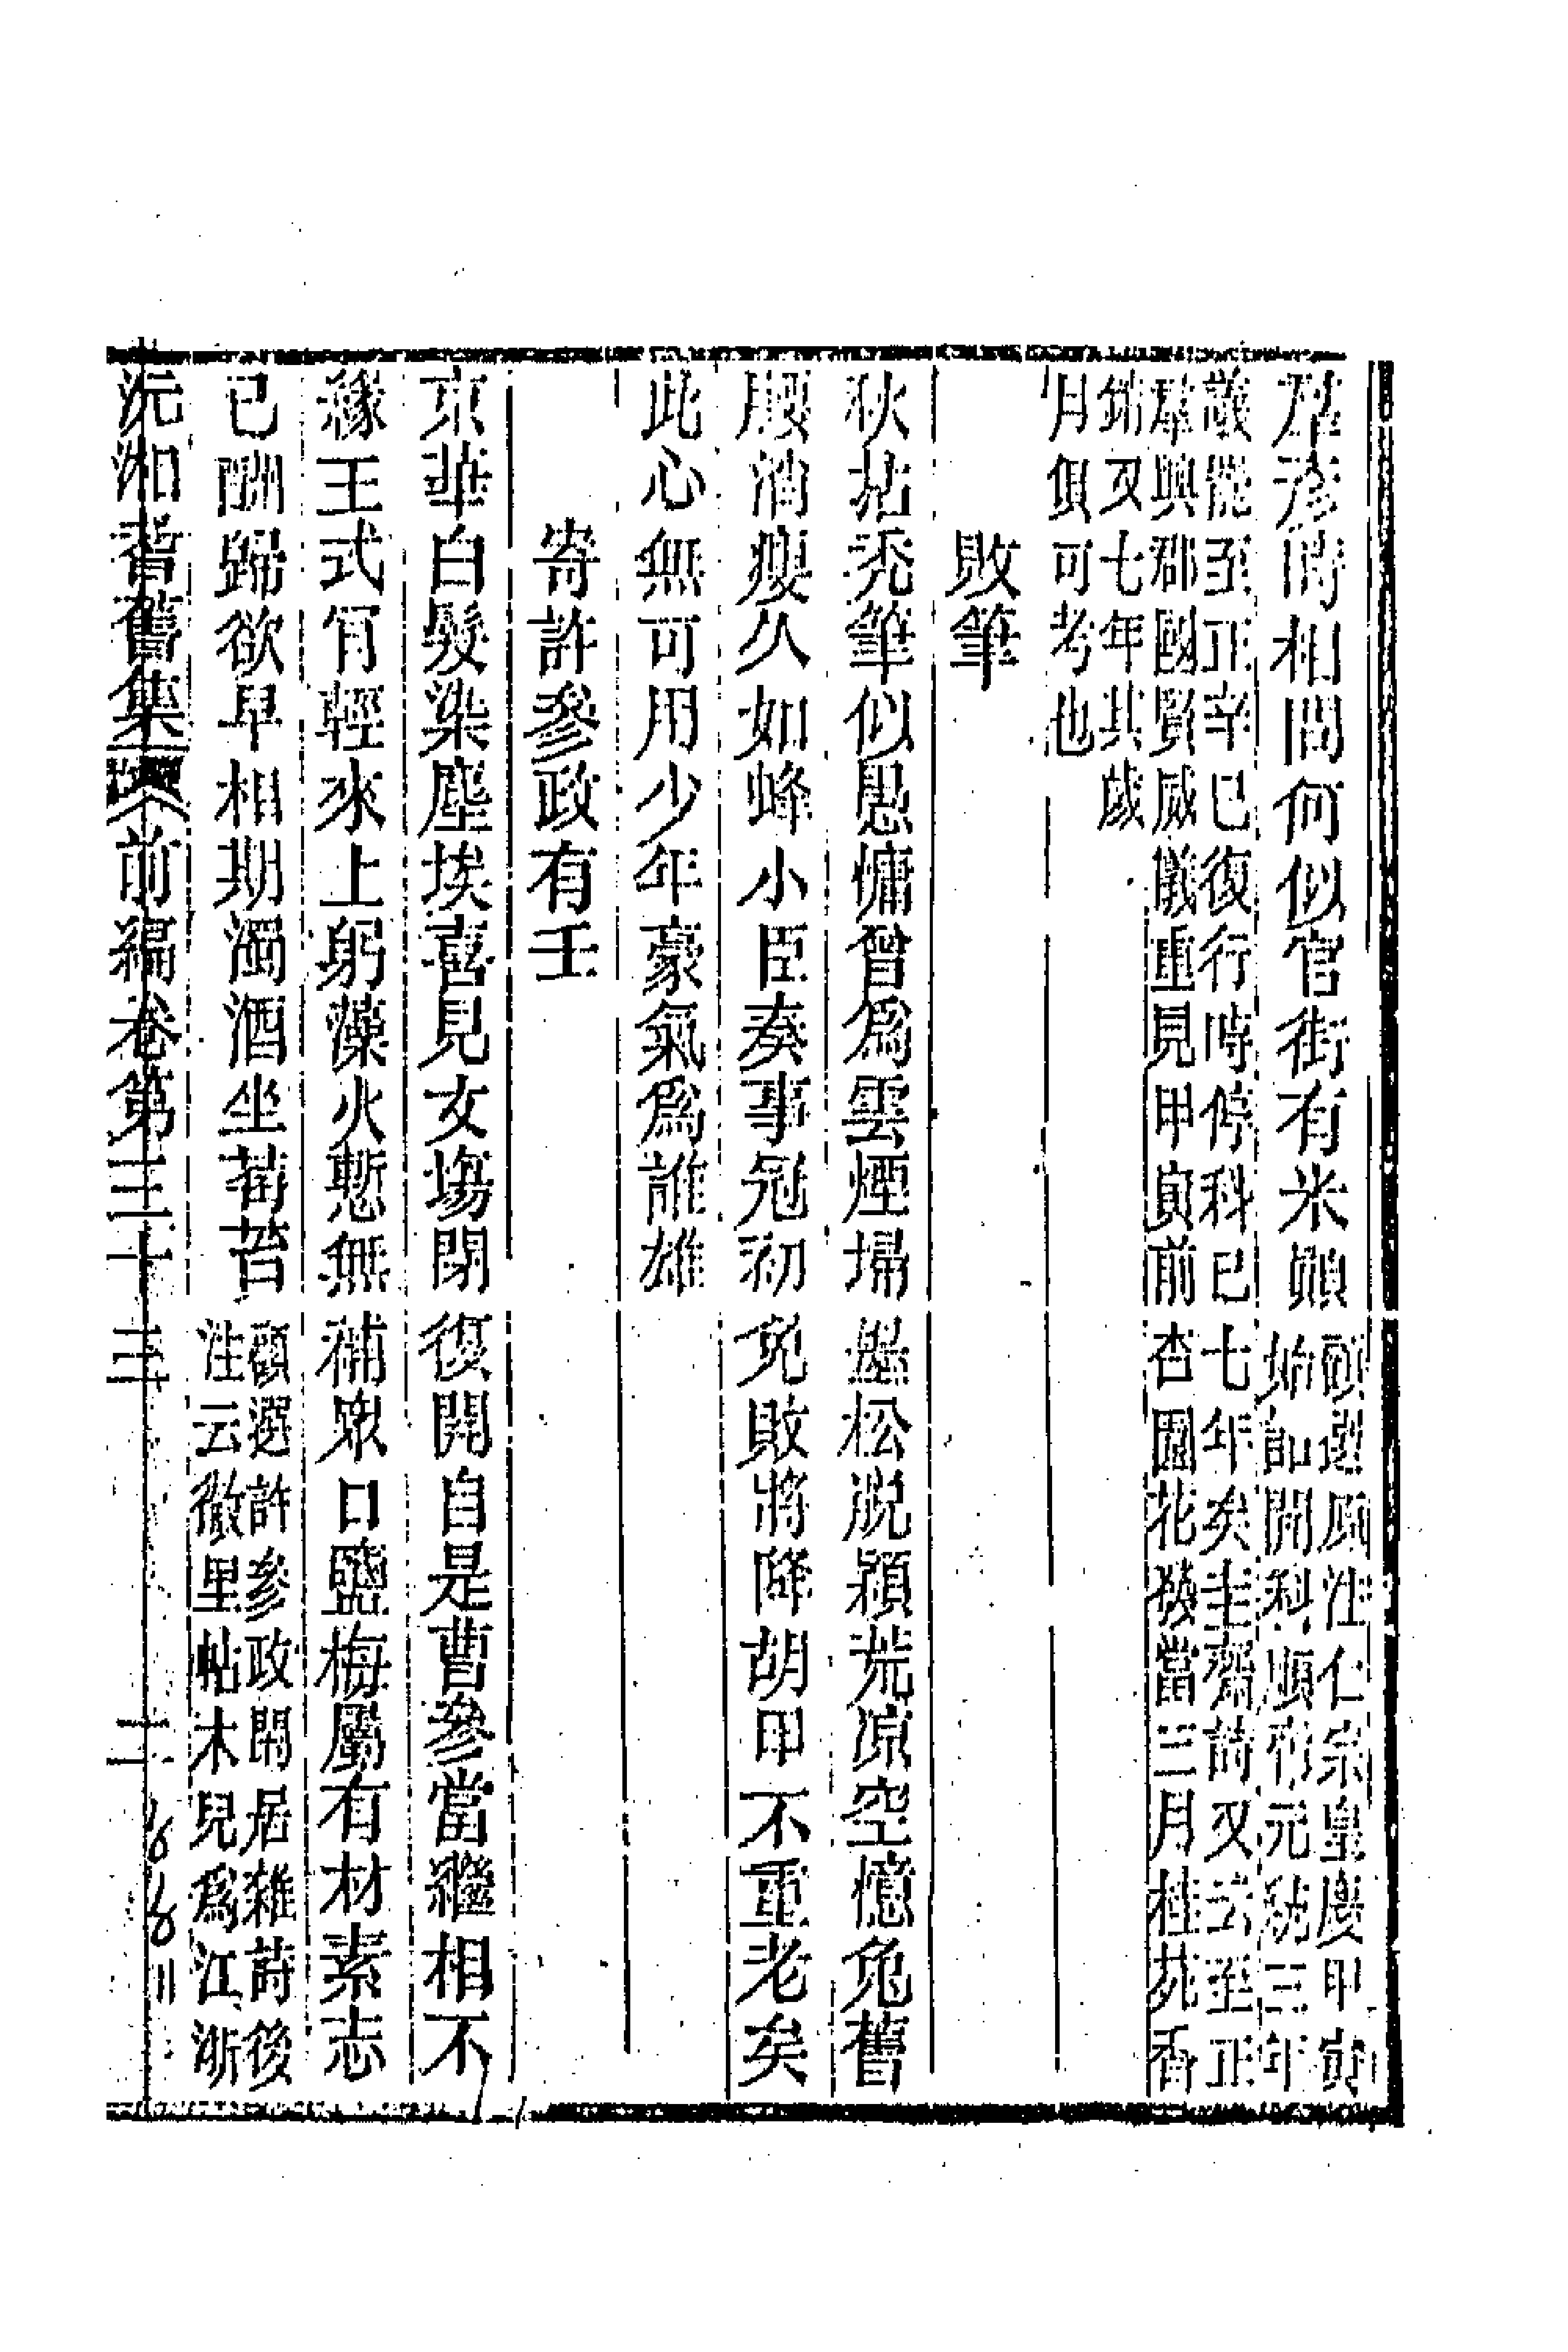 羣彦時相問何似官街有米顚
顧選原注仁宗皇慶甲寅
始詔開科順帝元統三年
議罷至正辛巳復行時停科已七年矣圭齋詩又云至正
羣興郡國賢威儀重見甲寅前杏園花發當三月桂苑香
銷又七年其歲
月俱可考也
敗筆
秋拈禿筆似愚慵曾爲雲煙埽墨松脫穎荒凉空憶兔舊
腰消瘦久如蜂小臣奏事冠初免敗將降胡甲不重老矣
此心無可用少年豪氣爲誰雄
寄許參政有壬
京華白髮染塵埃喜見女塲閉復開自是曹參當繼相不
緣王式肯輕來上躬藻火慙無補眾口鹽梅屬有材素志
已酬歸欲早相期濁酒坐莓苔
顧選許參政閒居雜詩後
注云徹里帖木兒爲江浙
沅湘耆舊集 前編卷第三十三 二